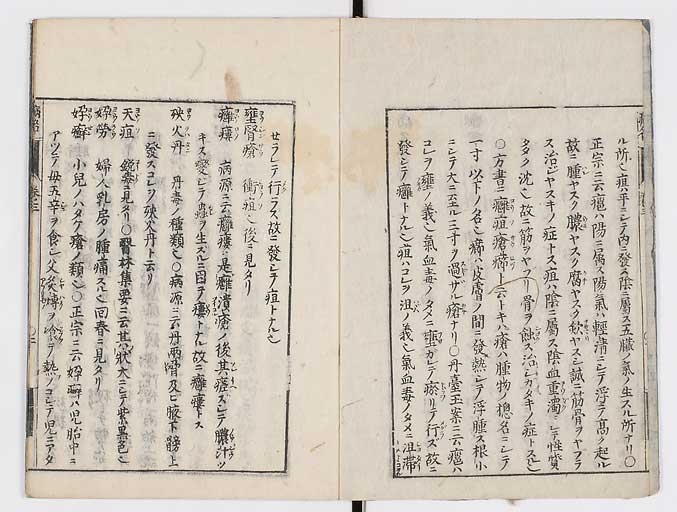 ル所ニ疽ハ平ニシテ内ニ發ス陰ニ屬ス五臓ノ氣ノ生スル所ナリ〇
正宗ニ云癰ハ陽ニ屬ス陽氣ハ輕清ニシテ浮テ高ク起ル
故ニ腫ヤスク膿ヤスク腐ヤスク歛ヤスシ誠ニ筋骨ヲヤフラ
ス治シヤスキノ症トス疽ハ陰ニ屬ス陰血重濁ニシテ性質
タク沈ム故ニ筋ヲヤフリ骨ヲ蝕ス治シカタキノ症トス
〇方書ニ癰疽瘡癤ト云トキハ瘡ハ腫物ノ總名ニシテ
一寸以下ノ名癤ハ皮膚ノ間ニ發熱シテ浮腫ス根小
ニシテ大ニ至ル二三寸ヲ過ザル瘡ナリ〇丹臺玉案ニ云癰ハ
コレヲ壅ノ義氣血毒ノタメニ壅ガレテ瘀リテ行ズ故ニ
發シテ癰トナル疽ハコレヲ沮ノ義氣血毒ノタメニ沮滯
セラレテ行ラス故ニ發シテ疽トナル
壅腎瘡 衝疽後ニ見タリ
癰瘻 病源ニ云癰瘻ハ是癰潰瘡ノ後其瘥スシテ膿汁ツ
キス變シテヲ生スルニ因ヲ瘻トナル故ニ癰瘻トス
殃火丹 丹毒ノ種類〇病源ニ云丹兩脅及ヒ腋下髈上
ニ發スコレヲ殃火丹ト云リ
天疽 銳毒ニ見タリ〇醫林集要ニ云其状大ニシテ紫黒色
妳勞 婦人乳房ノ腫痛スル回春ニ見タリ
妳癬 小兒ノハタケ瘡ノ類〇正宗ニ云妳癬ハ児胎中ニ
アツテ母五辛ヲ食シ父炙煿ヲ食テ熱ノコシテ児ニアタ